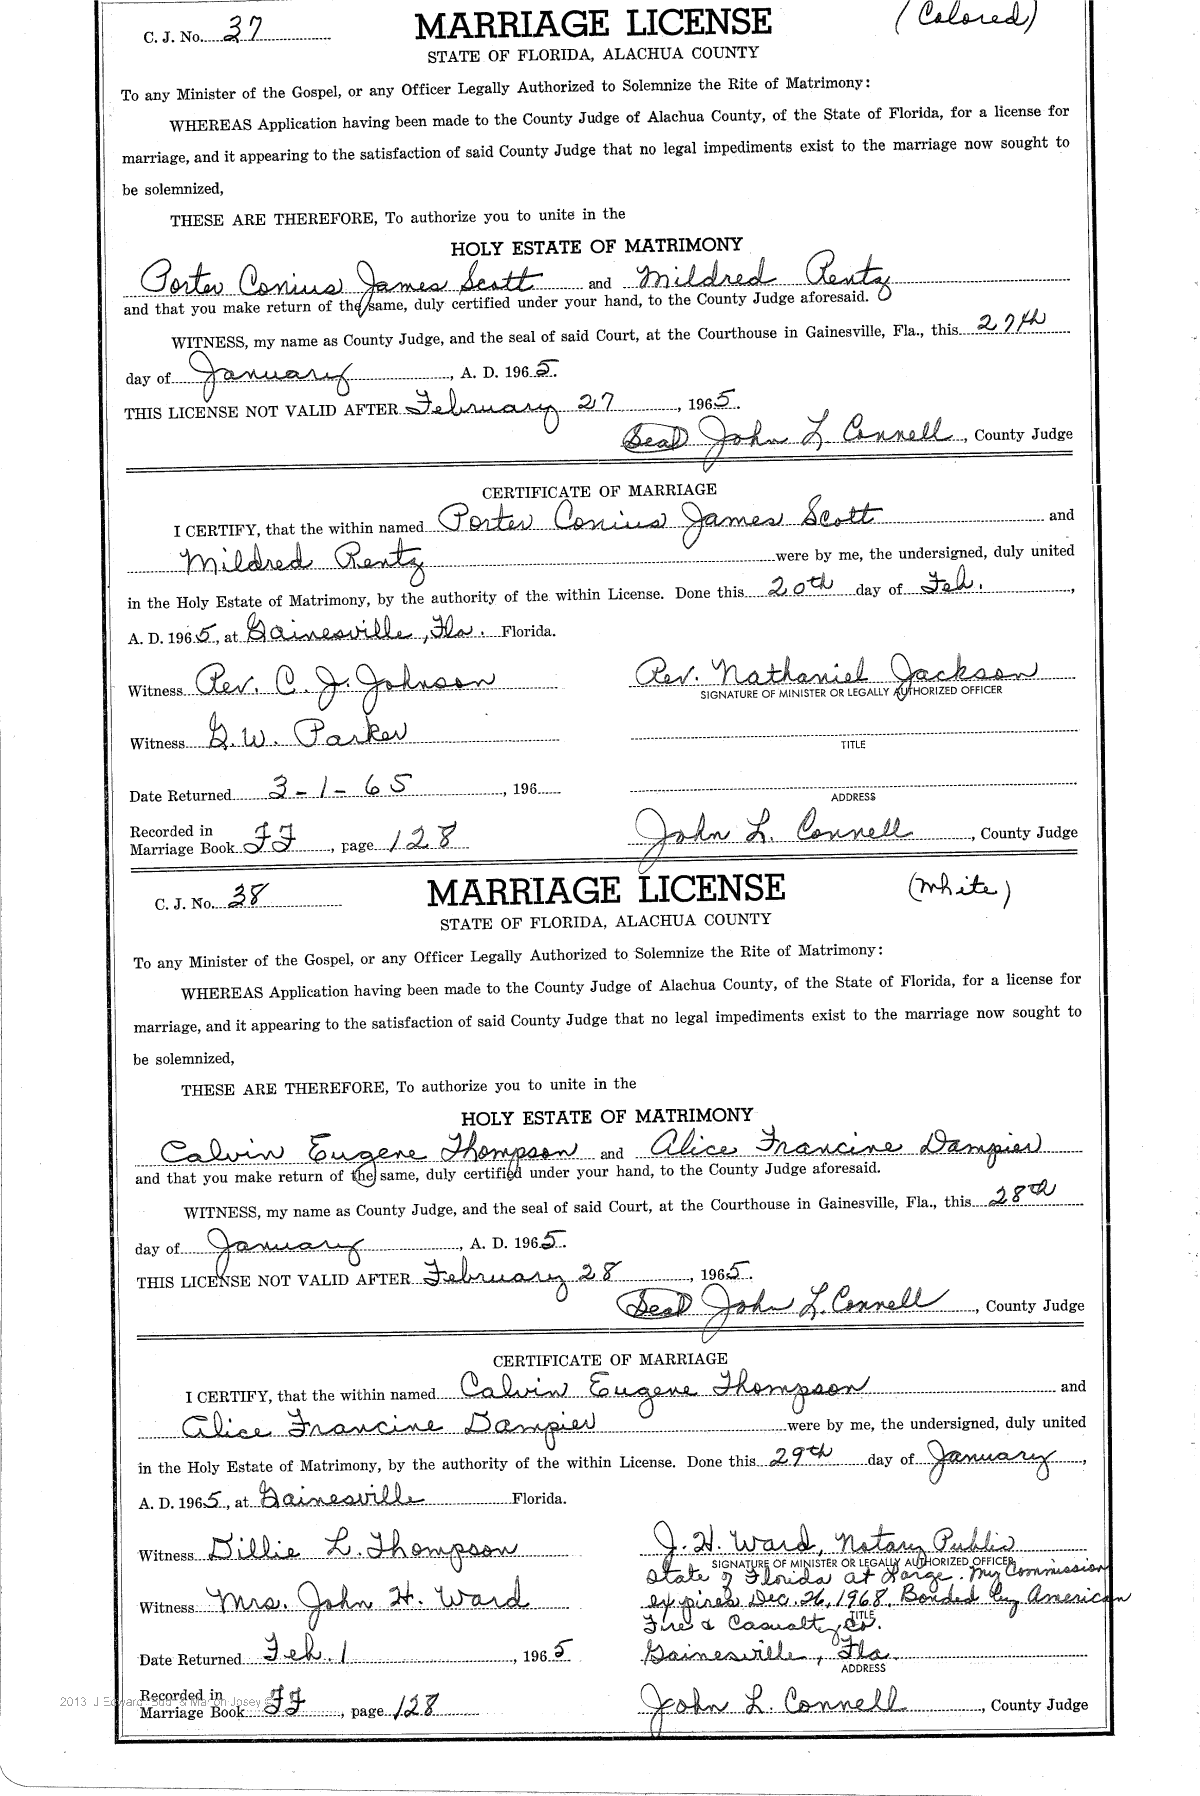 C. J. No. 37 MARRIAGE LICENSE (Colored)
STATE OF FLORIDA, ALACHUA COUNTY
To any Minister of the Gospel, or any Officer Legally Authorized to Solemnize the Rite of Matrimony:
WHEREAS Application having been made to the County Judge of Alachua County, of the State of Florida, for a license for
marriage, and it appearing to the satisfaction of said County Judge that no legal impediments exist to the marriage now sought to
be solemnized,
THESE ARE THEREFORE, To authorize you to unite in the
HOLY ESTATE OF MATRIMONY
Porter Conius James Scott and Mildred Rentz
and that you make return of the same, duly certified under your hand, to the County Judge aforesaid.
WITNESS, my name as County Judge, and the seal of said Court, at the Courthouse in Gainesville, Fla., this 27th
day of January, A. D. 1965.
THIS LICENSE NOT VALID AFTER February 27, 1965.
Seal John L. Connell, County Judge
CERTIFICATE OF MARRIAGE
I CERTIFY, that the within named Porter Conius James Scott and
Mildred Rentz were by me, the undersigned, duly united
in the Holy Estate of Matrimony, by the authority of the within License. Done this 20th day of Feb.,
A. D. 1965, at Gainesville, Fla. Florida.
Witness Rev. C. J. Johnson Rev. Nathaniel Jackson
SIGNATURE OF MINISTER OR LEGALLY AUTHORIZED OFFICER
Witness G.W. Parker
TITLE
Date Returned 3-1-65, 196
ADDRESS
Recorded in
Marriage Book FF, page 128 John L. Connell, County Judge
C. J. No. 38 MARRIAGE LICENSE (White)
STATE OF FLORIDA, ALACHUA COUNTY
To any Minister of the Gospel, or any Officer Legally Authorized to Solemnize the Rite of Matrimony:
WHEREAS Application having been made to the County Judge of Alachua County, of the State of Florida, for a license for
marriage, and it appearing to the satisfaction of said County Judge that no legal impediments exist to the marriage now sought to
be solemnized,
THESE ARE THEREFORE, To authorize you to unite in the
HOLY ESTATE OF MATRIMONY
Calvin Eugene Thompson and Alice Francine Dampier
and that you make return of the same, duly certified under your hand, to the County Judge aforesaid.
WITNESS, my name as County Judge, and the seal of said Court, at the Courthouse in Gainesville, Fla., this 28th
day of January, A. D. 1965.
THIS LICENSE NOT VALID AFTER February 28, 1965.
Seal John L. Connell, County Judge
CERTIFICATE OF MARRIAGE
I CERTIFY, that the within named Calvin Eugene Thompson and
Alice Francine Dampier were by me, the undersigned, duly united
in the Holy Estate of Matrimony, by the authority of the within License. Done this 29th day of January,
A. D. 1965, at Gainesville Florida.
Witness Billie L. Thompson J. H. Ward, Notary Public
SIGNATURE OF MINISTER OR LEGALLY AUTHORIZED OFFICER
State of Florida at Large. My Commission
Witness Mrs. John H. Ward expires Dec. 26, 1968. Bonded by American
Fire & Casualty Co.
TITLE
Date Returned Feb. 1, 1965 Gainesville, Fla.
ADDRESS
2013 J Edward
Recorded in
Marriage Book FF, page 128 John L. Connell, County Judge